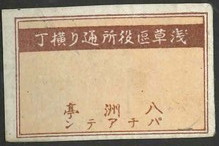 浅草區役所通り横丁
八洲亭
パチアテン